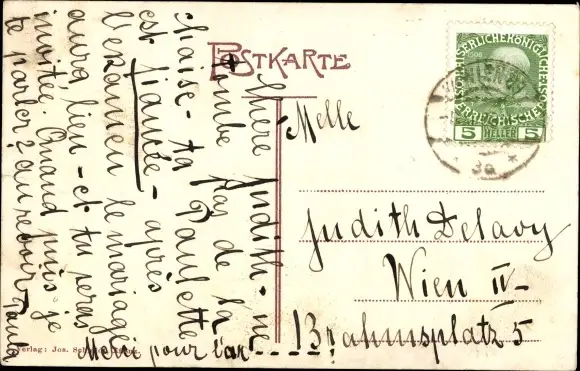 POSTKARTE
Chère Judith - ne
tombe pas de la
chaise - ta Paulette
est fiancée - après
l'examen le mariage
aura lieu - et tu seras
invitée. Quand puis-je
te parler? au revoir
Paula
Merci pour l'ar
Melle
Judith Delavy
Wien IV -
Brahmsplatz 5
KAISERLICHEKÖNIGLICHE
ÖSTERREICHISCHE
5 HELLER 5
WIEN
3a
Verlag: Jos.